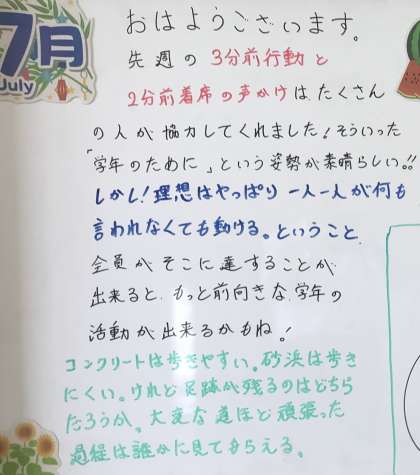 7月
July
おはようございます。
先週の3分前行動と
2分前着席の声かけは、たくさん
の人が協力してくれました!そういった
「学年のために」という姿勢が素晴らしい!!
しかし!理想はやっぱり一人一人が何も
言われなくても動ける。ということ。
全員がそこに達することが
出来ると、もっと前向きな学年の
活動が出来るかもね!
コンクリートは歩きやすい。砂浜は歩き
にくい。けれど足跡が残るのはどちら
だろうか。大変な道ほど頑張った
過程は誰かに見てもらえる。